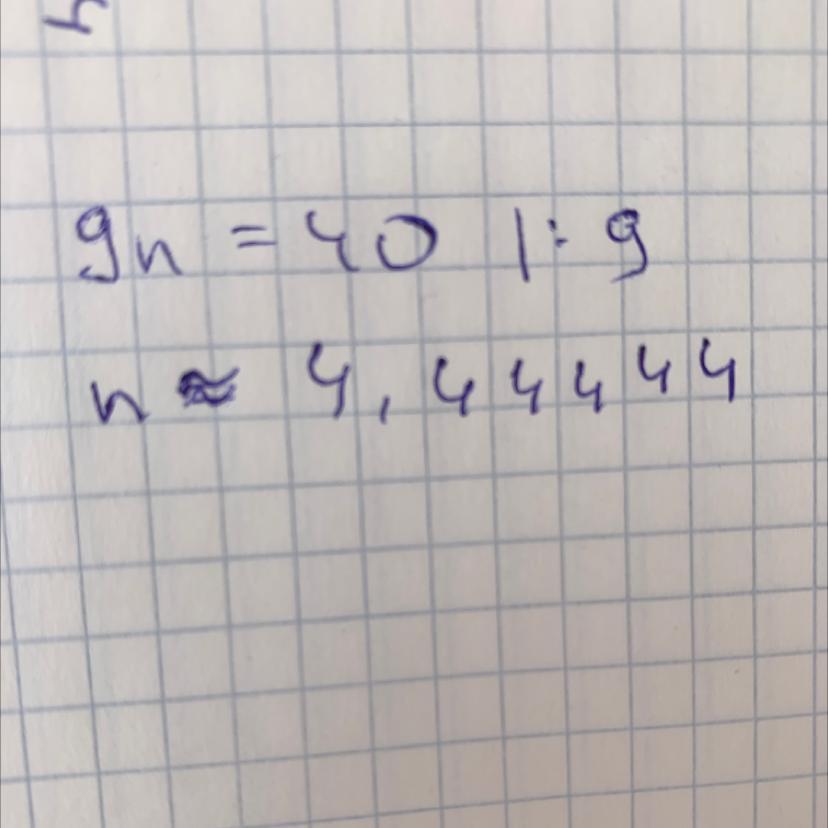 9n = 40 |: 9
n ≈ 4,44444